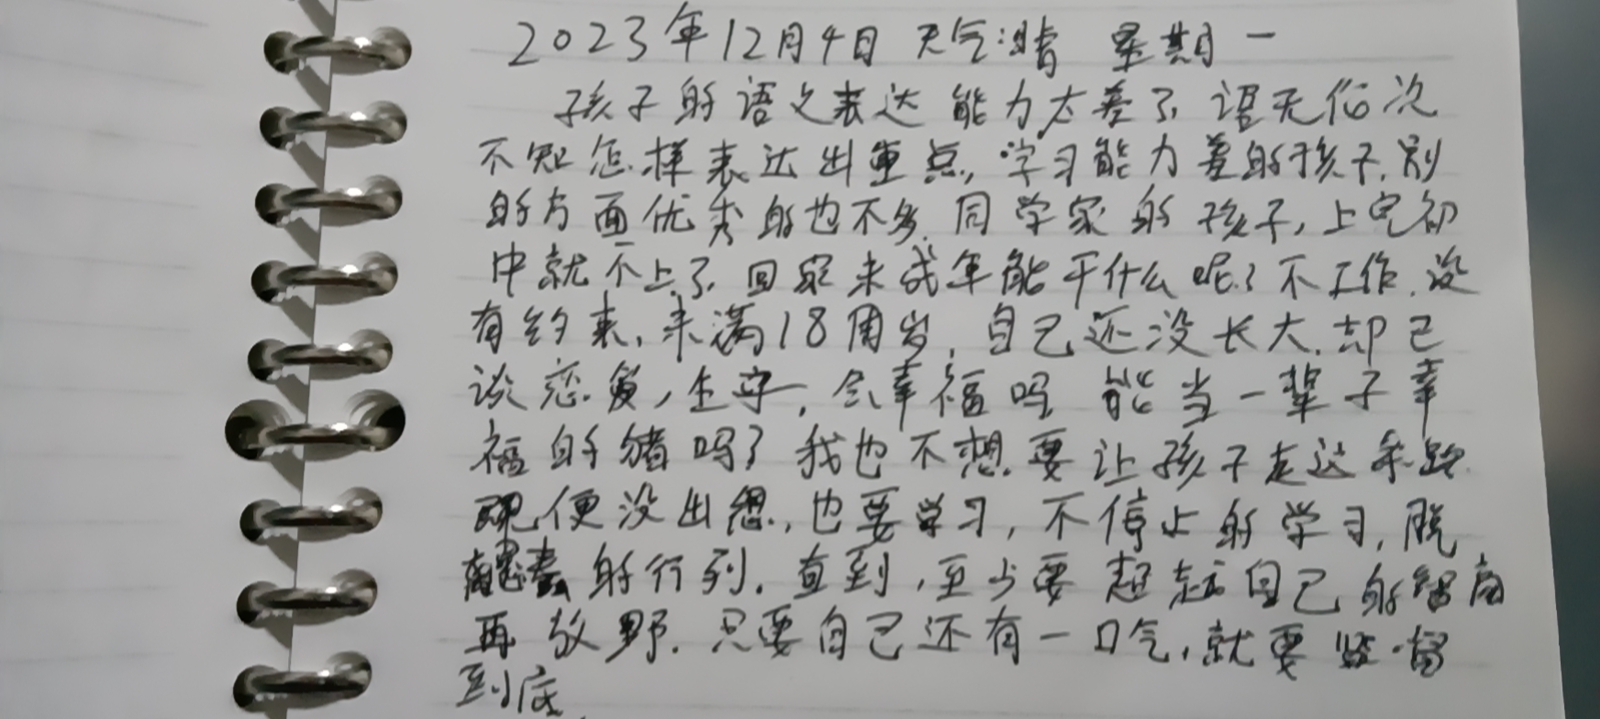 2023年12月4日 天气:晴 星期一
孩子的语文表达能力太差了,语无伦次
不知怎样表达出重点,学习能力差的孩子,别
的方面优秀的也不多.同学家的孩子,上完初
中就不上了,回家未成年能干什么呢?不工作.没
有约束,未满18周岁,自己还没长大,却已
谈恋爱,生子,会幸福吗 能当一辈子幸
福的猪吗?我也不想.要让孩子走这条路
即便没出息,也要学习,不停止的学习,脱
的行列.直到,至少要超越自己的智商
再放野.只要自己还有一口气,就要监督
到底.